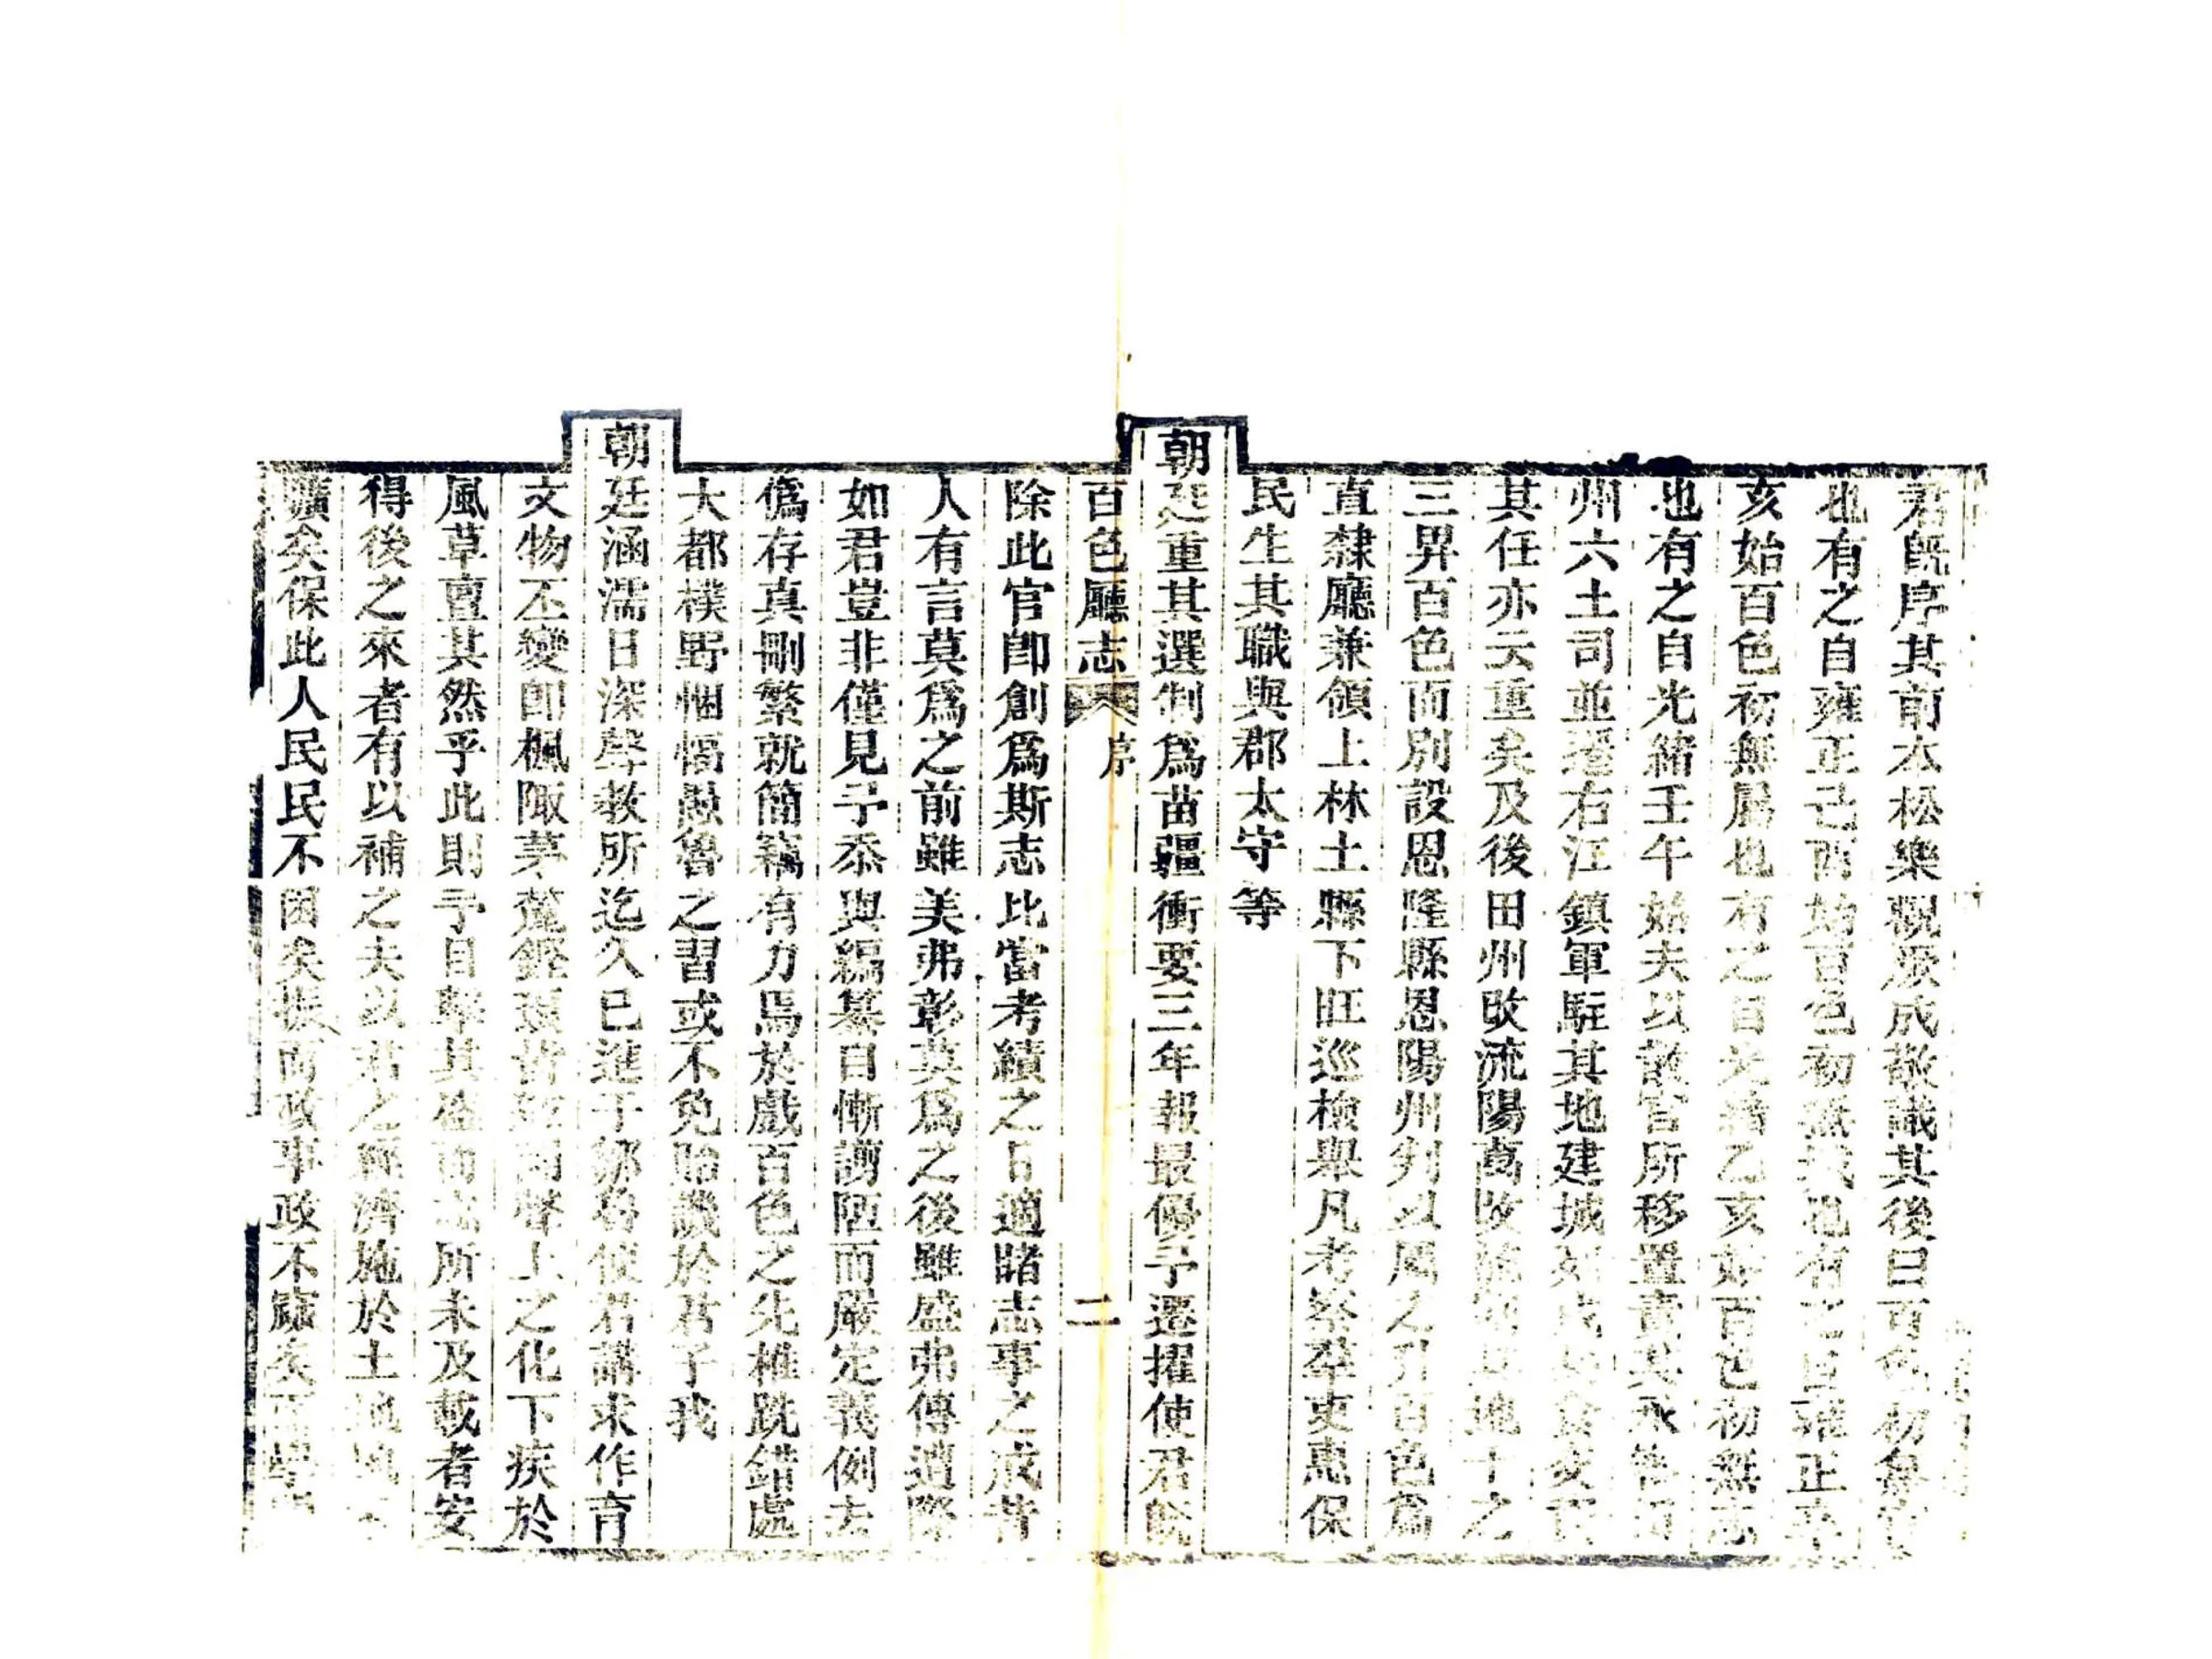 君旣序其前本松樂觀厥成敬識其後曰百色初無官
也有之自雍正己酉始百色初無城也有之自雍正辛
亥始百色初無屬也有之自光緖乙亥始百色初無志
也有之自光緖壬午始夫以散官所移置責其永
州六土司並逕右江鎭軍駐其地建城
其任亦云重矣及後田州改流陽萬改流地千之
三畀百色而別設恩隆縣恩陽州判以屬之升百色爲
直隸廳兼領上林土縣下旺巡檢舉凡考察羣吏惠保
民生其職與郡太守等
朝廷重其選制爲苗疆衝要三年報最優予遷擢使君旣
百色廳志 序 二
除此官卽創爲斯志比當考績之日適睹志事之成昔
人有言莫爲之前雖美弗彰莫爲之後雖盛弗傳遒際
如君豈非僅見予忝與編纂自慚謭陋而嚴定義例去
僞存真刪繁就簡竊有力焉於戲百色之先椎跣錯處
大都樸野悃愊愚魯之習或不免貽譏於君子我
朝廷涵濡日深聲敎所迄久已進于鄒魯使君講求作育
文物丕變卽楓陬茅麓鏗聲上之化下疾於
風草亶其然乎此則予目擊其盛而志所未及載者安
得後之來者有以補之夫以君之經濟施於土地
曠矣保此人民民不困矣振而政事政不窳矣